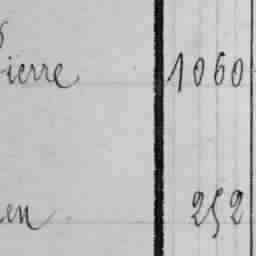 ierre 1060
en 252